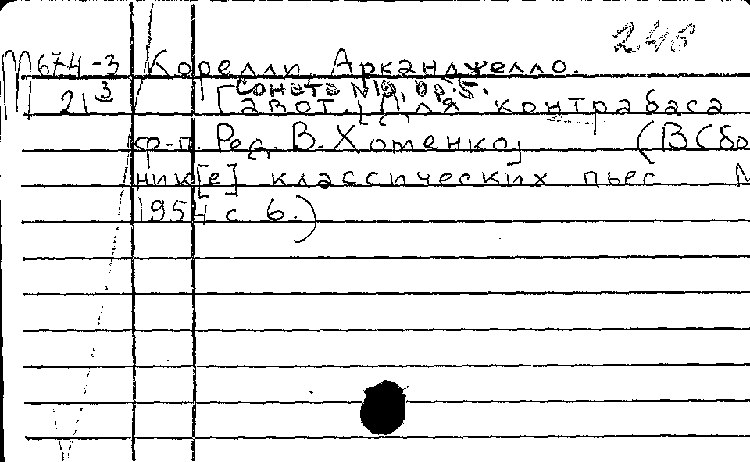 248
М 674-3 Корелли, Арканджелло.
Соната №10, Op. 5.
21 3 [Гавот.] Для контрабаса
ф-п. Ред. В. Хоменко, (В Сбо
ник[е] классических пьес М
1954 с 6.)